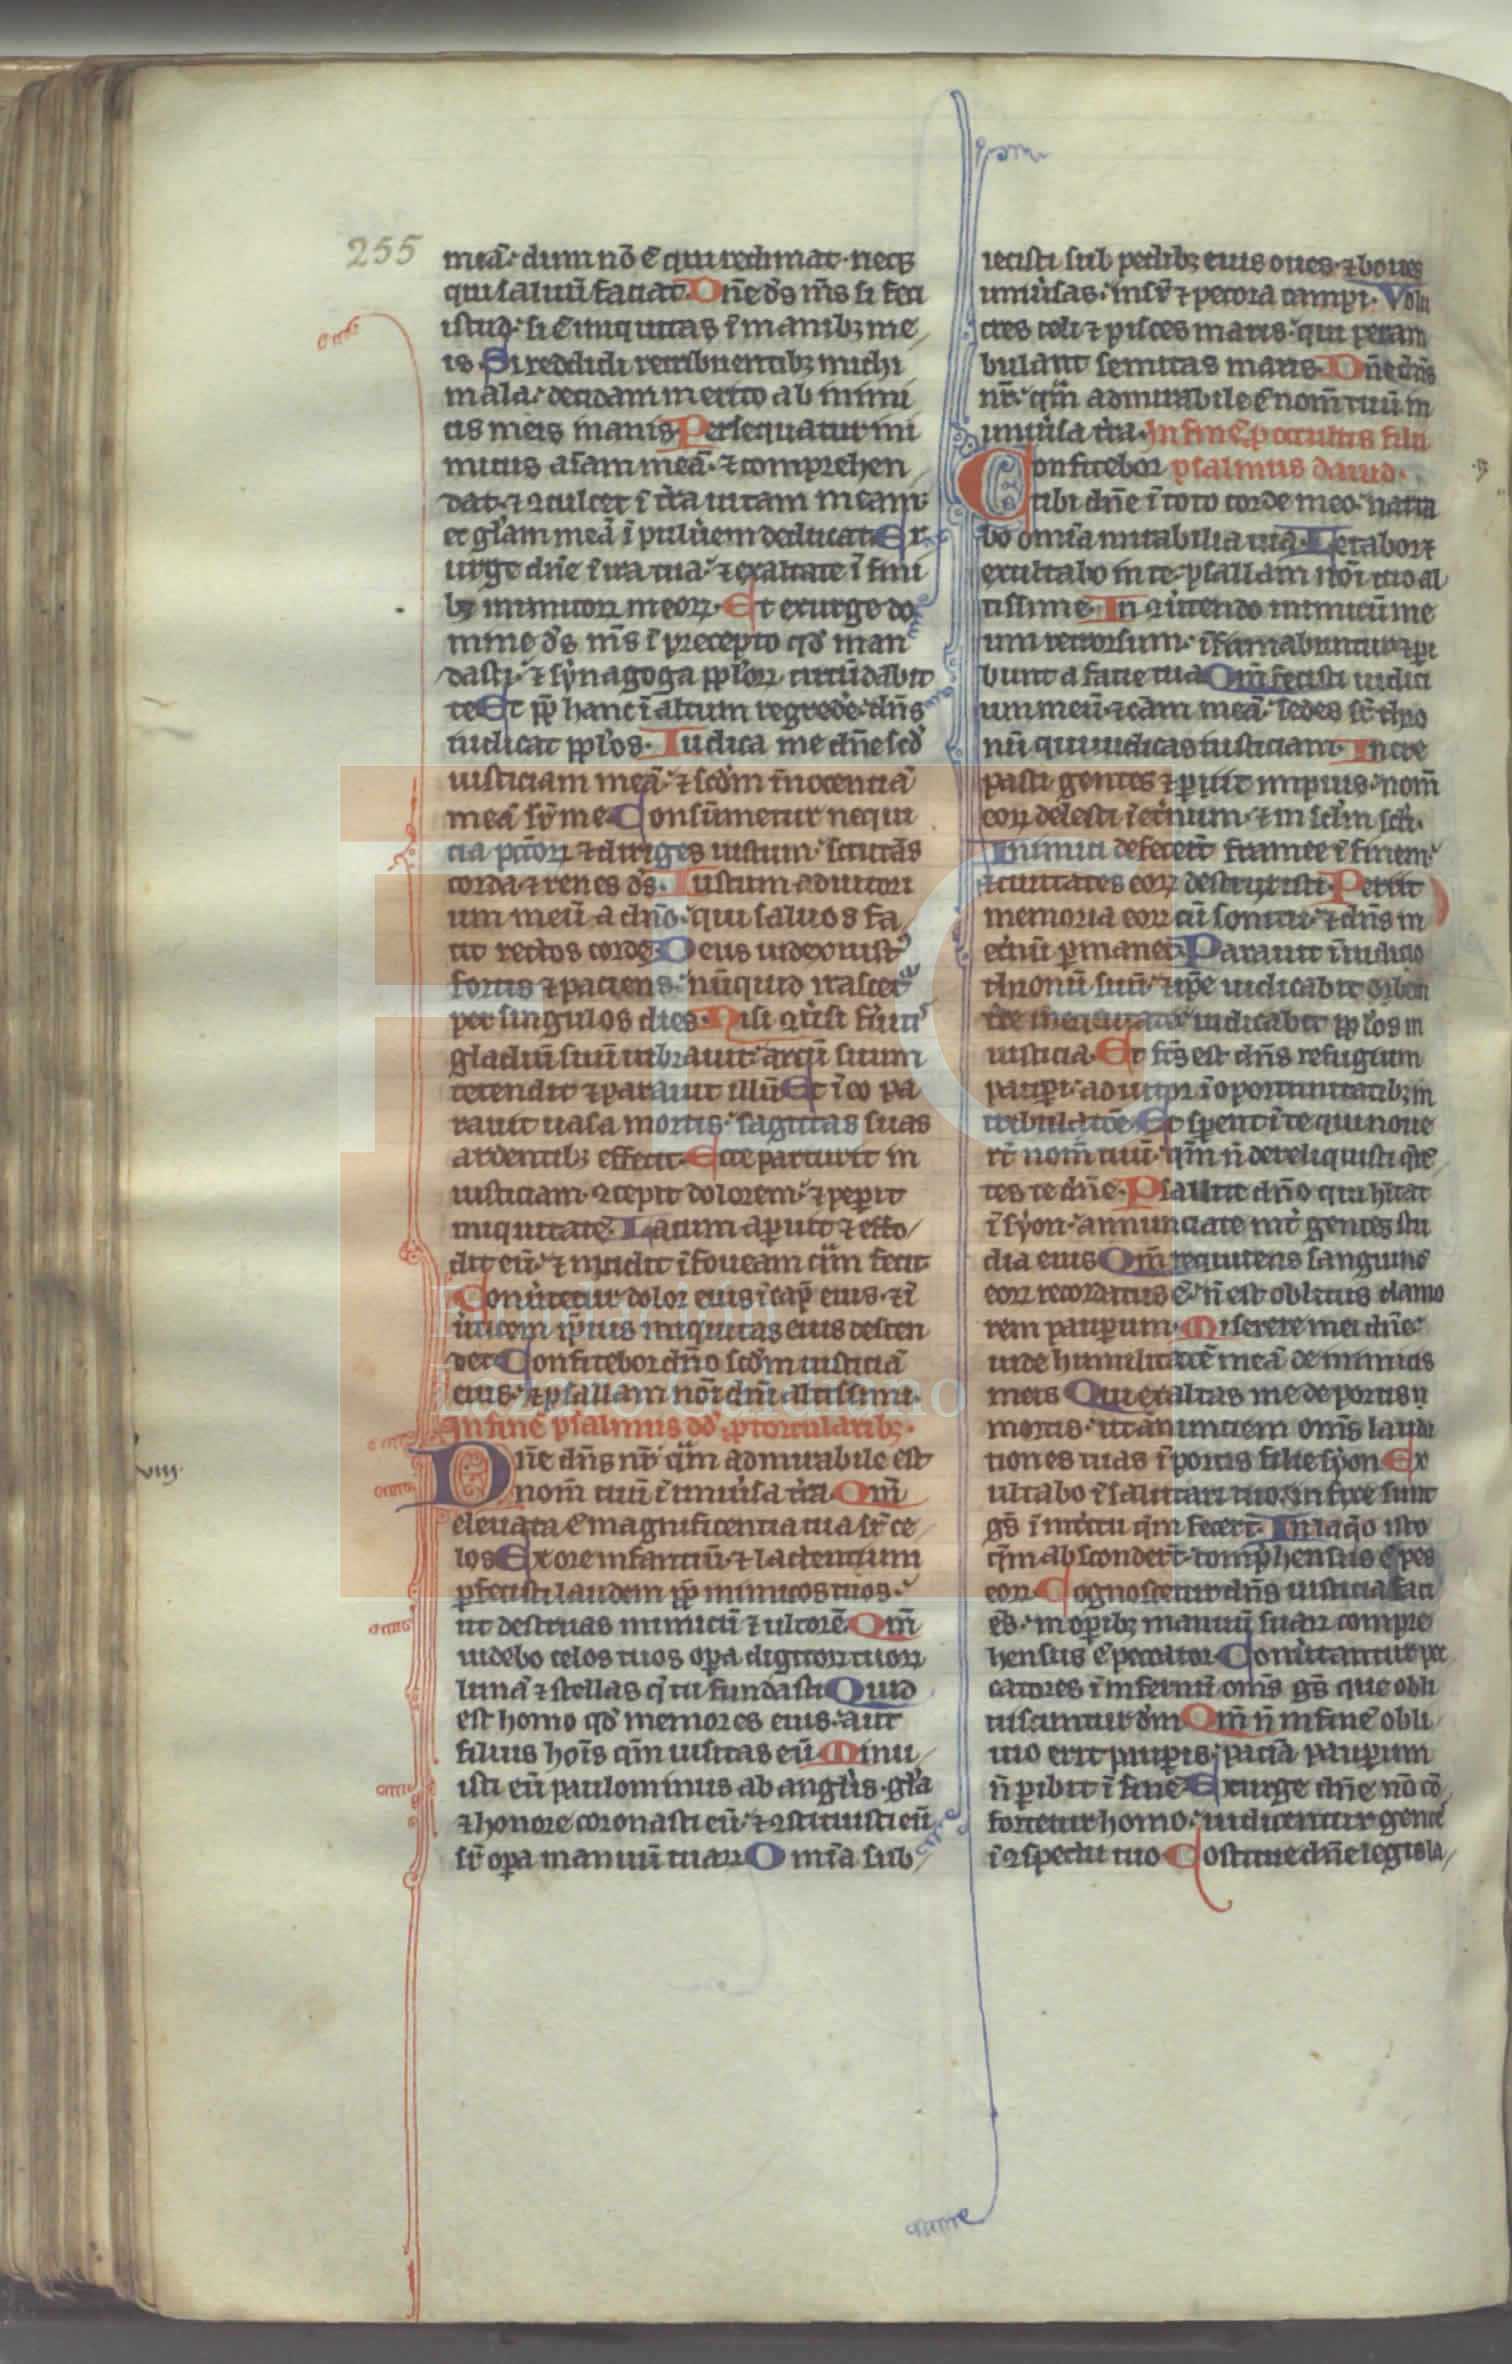 255
meā· dum nō ē qui redimat· neqꝫ
qui saluū faciat· Dn̄e dʼs mʼs si feci
istud· si ē iniquitas ī manibꝫ me
is· Si reddidi retribuentibꝫ michi
mala· decidam merito ab inimi
cis meis inanis· Persequatur ini
micus aīam meā· ⁊ comprehen
dat· ⁊ ꝯculcet ī tr̄a uitam meam·
et gl̄am meā ī puluʼem deducat· Ex
urge dn̄e ī ira tua· ⁊ exaltare ī fini
bꝫ inimicoꝝ meoꝝ· Et exurge do
mine dʼs mʼs ī precepto qd̓ man
dasti· ⁊ synagoga pp̄loꝝ circūdabit
te· Et pp̄ hanc ī altum regrede· dn̄s
iudicat pp̄los· Iudica me dn̄e scd̓
iusticiam meā· ⁊ scd̓m īnocentiā
meā sr̄ me· Consūmetur nequi
cia pc̄oꝝ ⁊ diriges iustum· scrutās
corda ⁊ renes dʼs· Iustum adiutori
um meū a dn̄o· qui saluos fa
cit rectos corde· Deus iudex iustʼ
fortis ⁊ paciens· nūquid irasceť
per singulos dies· Nisi ꝯuʼsi fūitʼ
gladiū suū uibrauit· arcū suum
tetendit ⁊ parauit illū· Et ī eo pa
rauit uasa mortis· sagittas suas
ardentibꝫ effecit· Ecce parturit in
iusticiam· ꝯcepit dolorem· ⁊ peperit
iniquitatē· Lacum aperuit ⁊ effo
dit eū· ⁊ incidit ī foueam quā fecit
Conuʼtetur dolor eius ī cap̄ eius· ⁊ ī
uʼticem ip̄ius iniquitas eius descen
det· Confitebor dn̄o scd̓m iusticiā
eius· ⁊ psallam nōi dn̄i altissimi·
In finē psalmus dd̓ ꝓ torcularibꝫ·
viij·
Dn̄e dn̄s nr̄ qm̄ admirabile est
nom̄ tuū ī uniuʼsa tr̄a· Qm̄
eleuata ē magnificentia tua sr̄ ce
los· Ex ore infantiū· ⁊ lactentium
ꝑfecisti laudem pp̄ inimicos tuos·
ut destruas inimicū ⁊ ultorē· Qm̄
uidebo celos tuos oꝑa digitoꝝ tuoꝝ
lunā ⁊ stellas q̄ tu fundasti· Quid
est homo qd̓ memor es eius· aut
filius hoīs qm̄ uisitas eū· Minu
isti eū paulominus ab anglʼis· glʼa
⁊ honore coronasti eū· ⁊ ꝯstituisti eū
sr̄ oꝑa manuū tuaꝝ· Omīa sub
iecisti sub pedibꝫ eius oues· ⁊ boues
uniuʼsas· insū ⁊ pecora campi· Volu
cres celi ⁊ pisces maris· qui peram
bulant semitas maris· Dn̄e dn̄s
nr̄· qm̄ admirabile ē nom̄ tuū in
uniuʼsa tr̄a· In finē ꝓ occultis filii
Confitebor psalmus dauid·
tibi dn̄e ī toto corde meo· narra
bo omīa mirabilia tua· Letabor ⁊
exultabo in te· psallam nōi tuo al
tissime· In ꝯuʼtendo inimicū me
um retrorsum· īfirmabuntur ⁊ ꝑi
bunt a facie tua· Qm̄ fecisti iudici
um meū ⁊ cām meā· sedes sr̄ thro
nū qui iudicas iusticiam· Incre
pasti gentes ⁊ ꝑiit impius· nom̄
eoꝝ delesti ī et̓num· ⁊ in scl̓m scl̓i·
Inimici defecer̄t framee ī finem·
⁊ ciuitates eoꝝ destruxisti· Periit
memoria eoꝝ cū sonitu· ⁊ dn̄s in
et̓nū ꝑmanet· Parauit ī iudicio
thronū suū· ⁊ ip̄e iudicabit orbem
tr̄e in equitate· iudicabit pp̄los in
iusticia· Et fc̄s est dn̄s refugium
pauꝑi· adiutor ī oportunitatibꝫ in
tribulatōe· Et sꝑent ī te qui noue
rt̄ nom̄ tuū· qm̄ n̄ dereliquisti q̄rē
tes te dn̄e· Psallite dn̄o qui hītat
ī syon· annunciate int̓ gentes stu
dia eius· Qm̄ requirens sanguinē
eoꝝ recordatus ē· n̄ est oblitus clamo
rem pauꝑum· Miserere mei dn̄e·
uide humilitatē meā de inimicis
meis· Qui exaltas me de portis
mortis· ut anunciem omīs lauda
tiones tuas ī portis filie syon· Ex
ultabo ī salutari tuo· infixe sunt
gn̄s ī intʼitu qm̄ fecer̄t· In laq̄o isto
qm̄ absconder̄t· comp̄hensus ē pes
eoꝝ· Cognoscetur dn̄s iusticia faci
ēs· in oꝑibꝫ manuū suaꝝ compre
hensus ē peccator· Conuʼtantur pec
catores ī infernū· omīs gn̄s que obli
uiscuntur dm̄· Qm̄ n̄ in finē obli
uio erit pauꝑis· paciā pauꝑum
n̄ ꝑibit ī finē· Exurge dn̄e nō cō
fortetur homo· iudicentur gentē
ī ꝯspectu tuo· Constitue dn̄e legisla